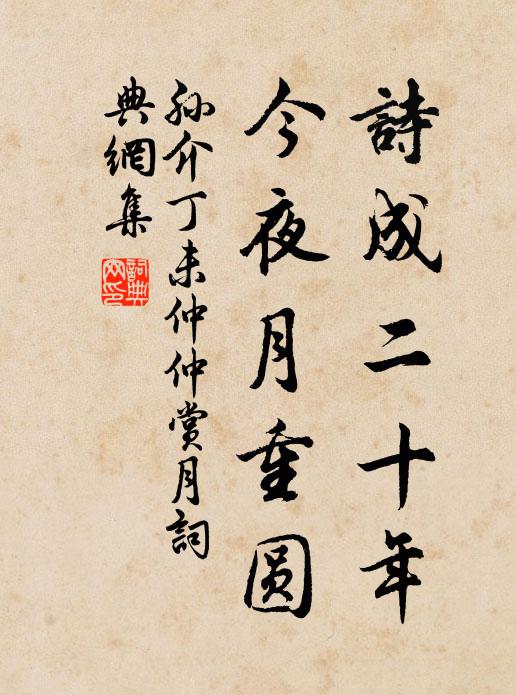 詩成二十年
今夜月重圆
孙介丁未仲仲賞月詞
典網集
詞典
网印